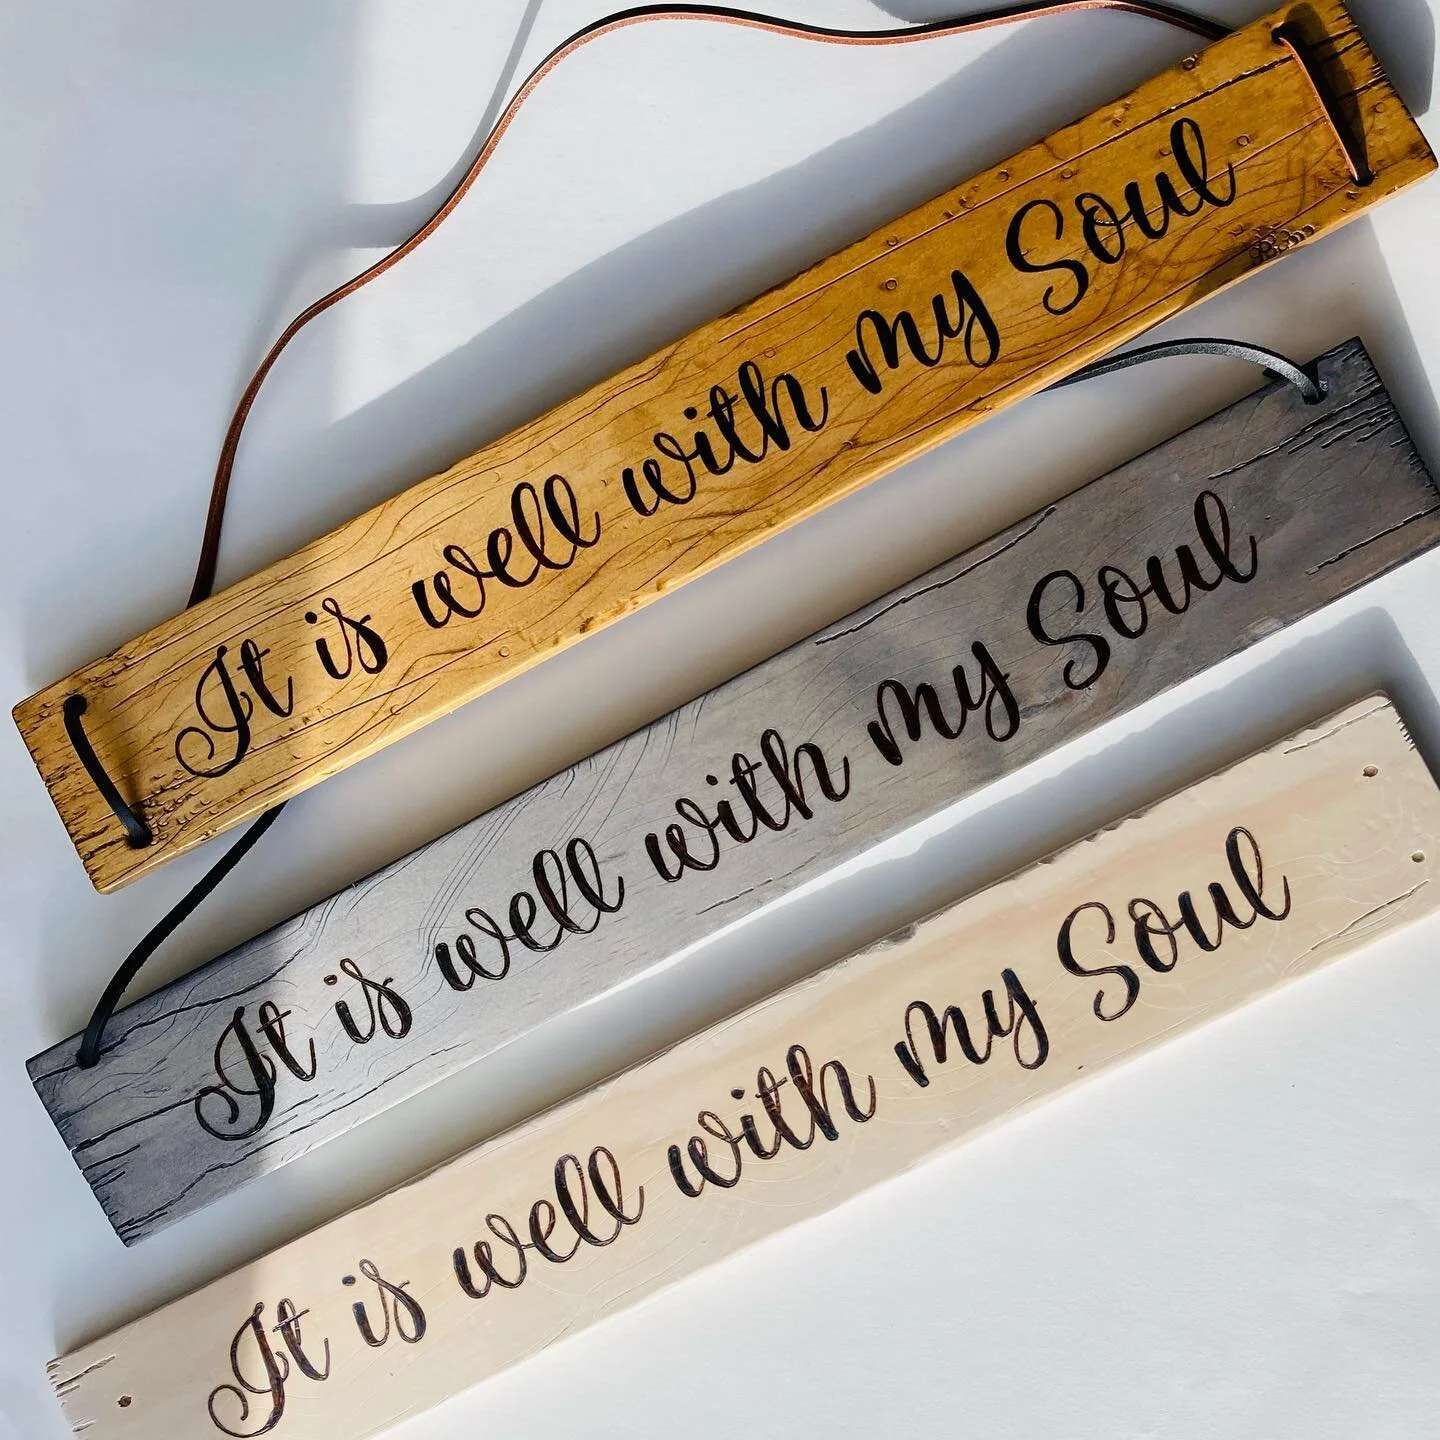 It is well with my Soul
It is well with my Soul
It is well with my Soul